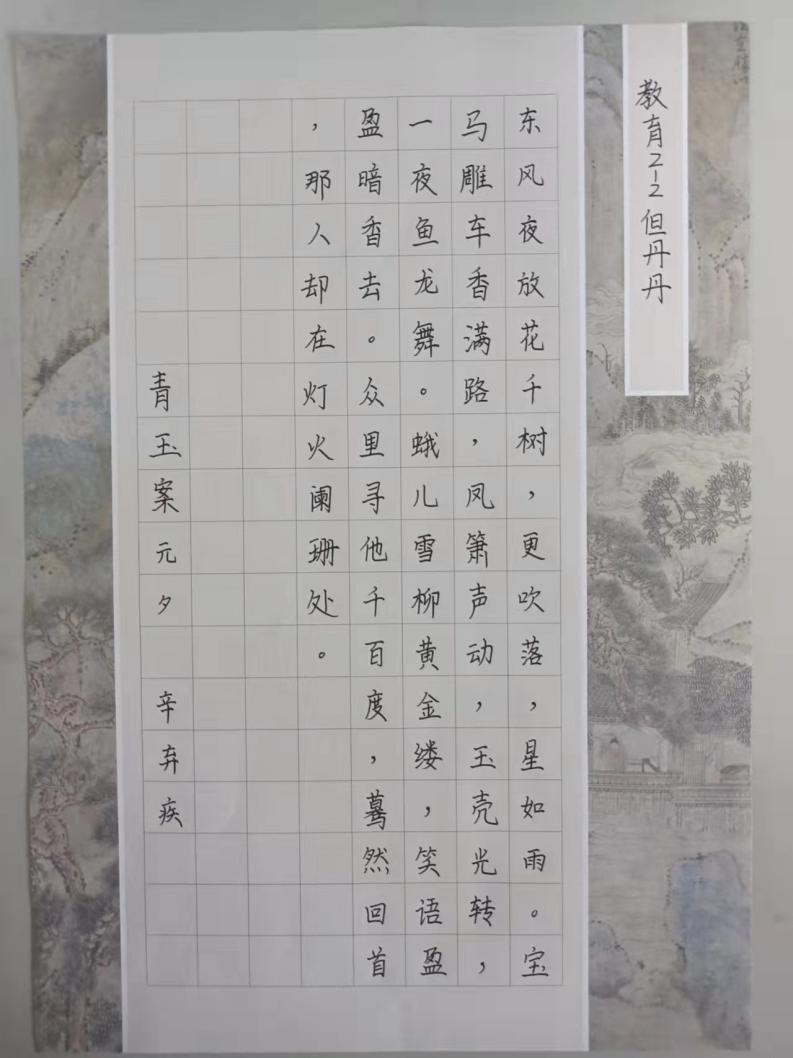 教育2-2但丹丹
东风夜放花千树，更吹落，星如雨。宝
马雕车香满路，凤箫声动，玉壳光转，
一夜鱼龙舞。蛾儿雪柳黄金缕，笑语盈
盈暗香去。众里寻他千百度，蓦然回首
，那人却在灯火阑珊处。
青玉案元夕 辛弃疾